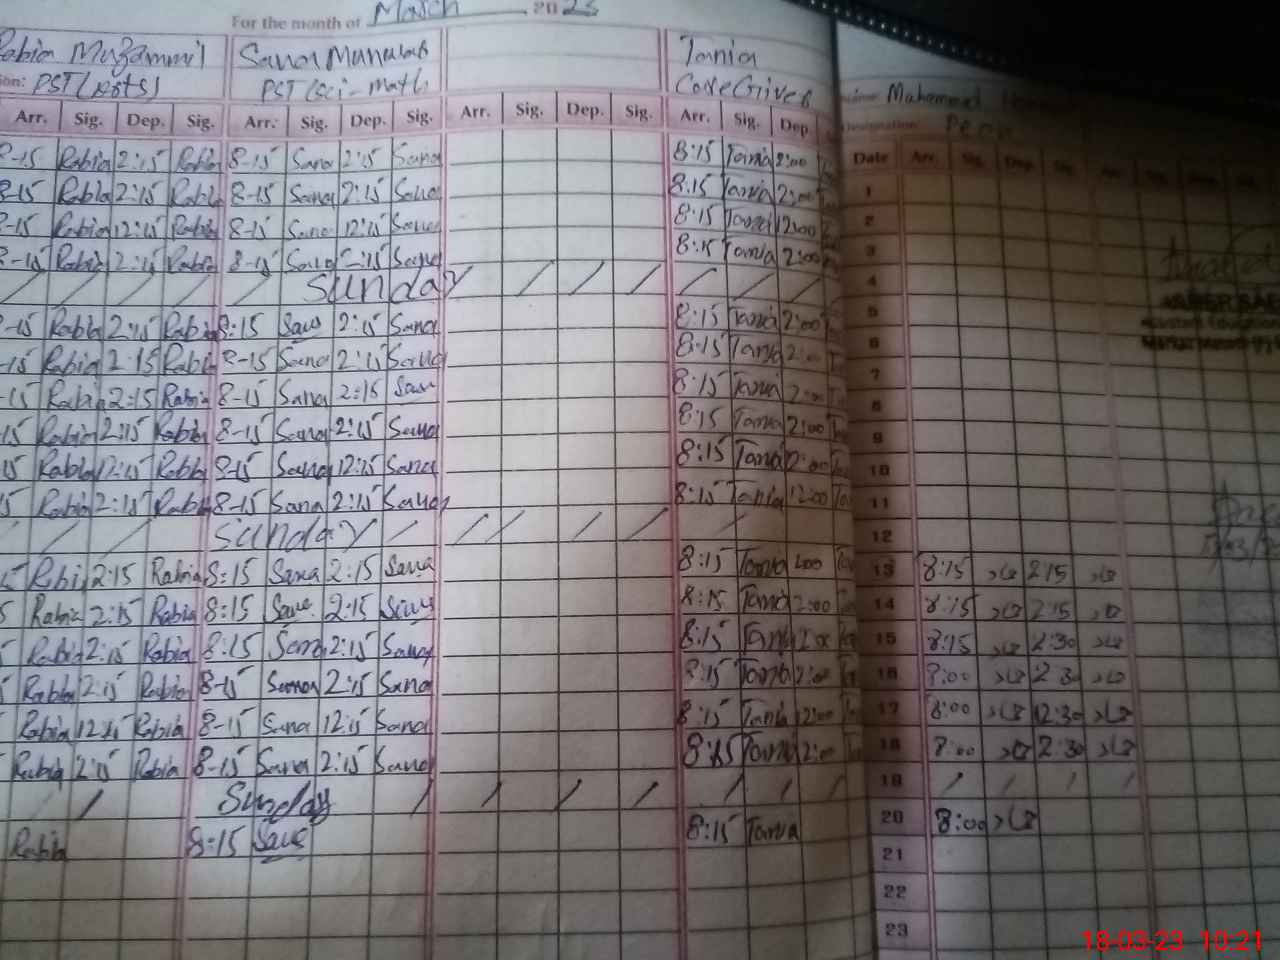 For the month of March 2023
Rabia Muzammil Sana Munawar Tania Muhammad
PST (Arts) PST (sci-math) CareGiver Designation: Peon
Arr. Sig. Dep. Sig. Arr. Sig. Dep. Sig. Arr. Sig. Dep. Sig. Arr. Sig. Dep. Date Arr. Sig. Dep. Sig.
8-15 Rabia 2:15 Rabia 8-15 Sana 2:15 Sana 8:15 Tania 2:00 1
8-15 Rabia 2:15 Rabia 8-15 Sana 2:15 Sana 8:15 Tania 2:00 2
8-15 Rabia 12:15 Rabia 8-15 Sana 12:15 Sana 8:15 Tania 12:00 3
8-15 Rabia 2:15 Rabia 8-15 Sana 2:15 Sana 8:15 Tania 2:00 4
Sunday 5
-15 Rabia 2:15 Rabia 8:15 Sana 2:15 Sana 8:15 Tania 2:00 6
-15 Rabia 2:15 Rabia 8-15 Sana 2:15 Sana 8:15 Tania 2:00 7
-15 Rabia 2:15 Rabia 8-15 Sana 2:15 Sana 8:15 Tania 2:00 8
15 Rabia 2:15 Rabia 8-15 Sana 2:15 Sana 8:15 Tania 2:00 9
15 Rabia 12:15 Rabia 8-15 Sana 12:15 Sana 8:15 Tania 2:00 10
5 Rabia 2:15 Rabia 8-15 Sana 2:15 Sana 8:15 Tania 12:00 11
Sunday 12
5 Rabia 2:15 Rabia 8:15 Sana 2:15 Sana 8:15 Tania 2:00 13 8:15 2:15
5 Rabia 2:15 Rabia 8:15 Sana 2:15 Sana 8:15 Tania 2:00 14 8:15 2:15
Rabia 2:15 Rabia 8:15 Sana 2:15 Sana 8:15 Tania 2:00 15 8:15 2:30
Rabia 2:15 Rabia 8-15 Sana 2:15 Sana 8:15 Tania 2:00 16 8:00 2:30
Rabia 12:15 Rabia 8-15 Sana 12:15 Sana 8:15 Tania 12:00 17 8:00 12:30
Rabia 2:15 Rabia 8-15 Sana 2:15 Sana 8:15 Tania 2:00 18 8:00 2:30
Sunday 19
Rabia 8:15 Sana 8:15 Tania 20 8:00
21
22
23
18-03-23 10:21